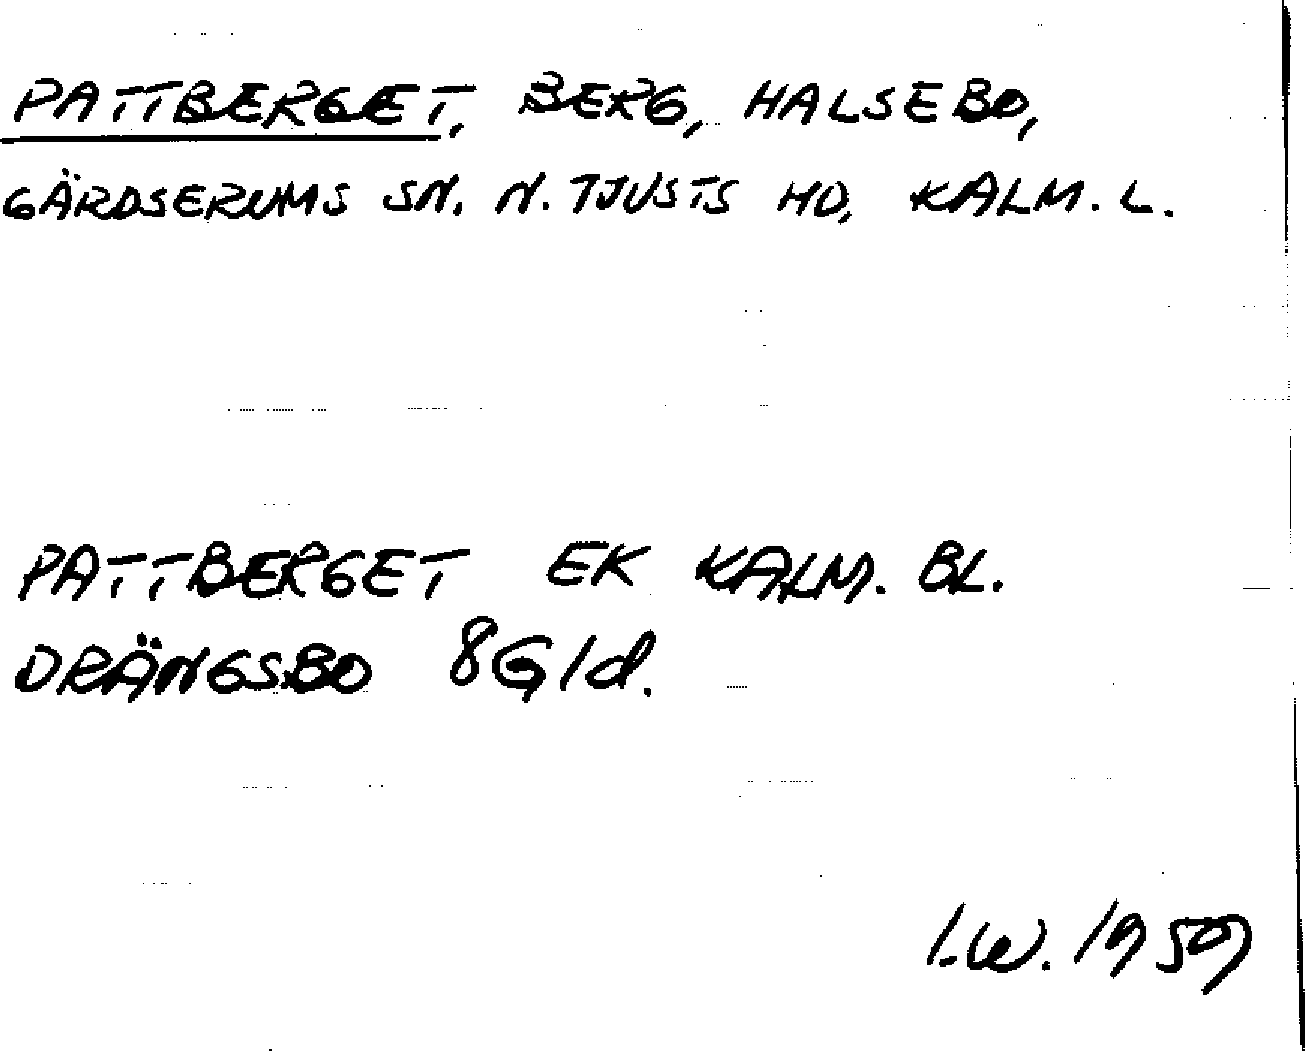 PATTBERGET, BERG, HALSEBO,
GÄRDSERUMS SN. N. TJUSTS HD, KALM. L.
PATTBERGET EK KALM. BL.
DRÄNGSBO 8G1d.
I.W. 1959